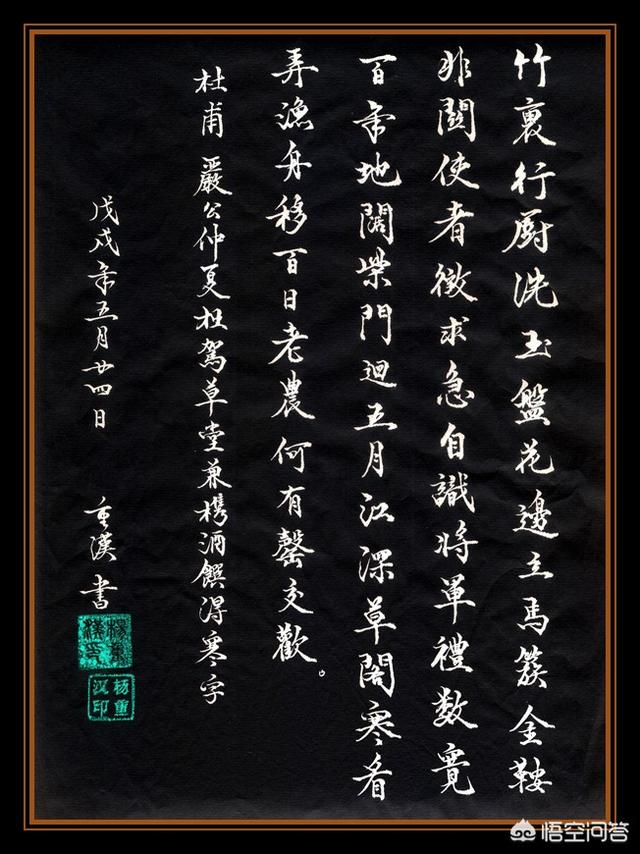 竹裏行厨洗玉盤花邊立馬簇金鞍
非關使者徵求急自識將軍禮數寬
百年地闊柴門迴五月江深草閣寒看
弄漁舟移百日老農何有罄交歡。
杜甫 嚴公仲夏枉駕草堂兼携酒饌得寒字
戊戌年五月廿四日 重漢書
杨重汉印
悟空问答